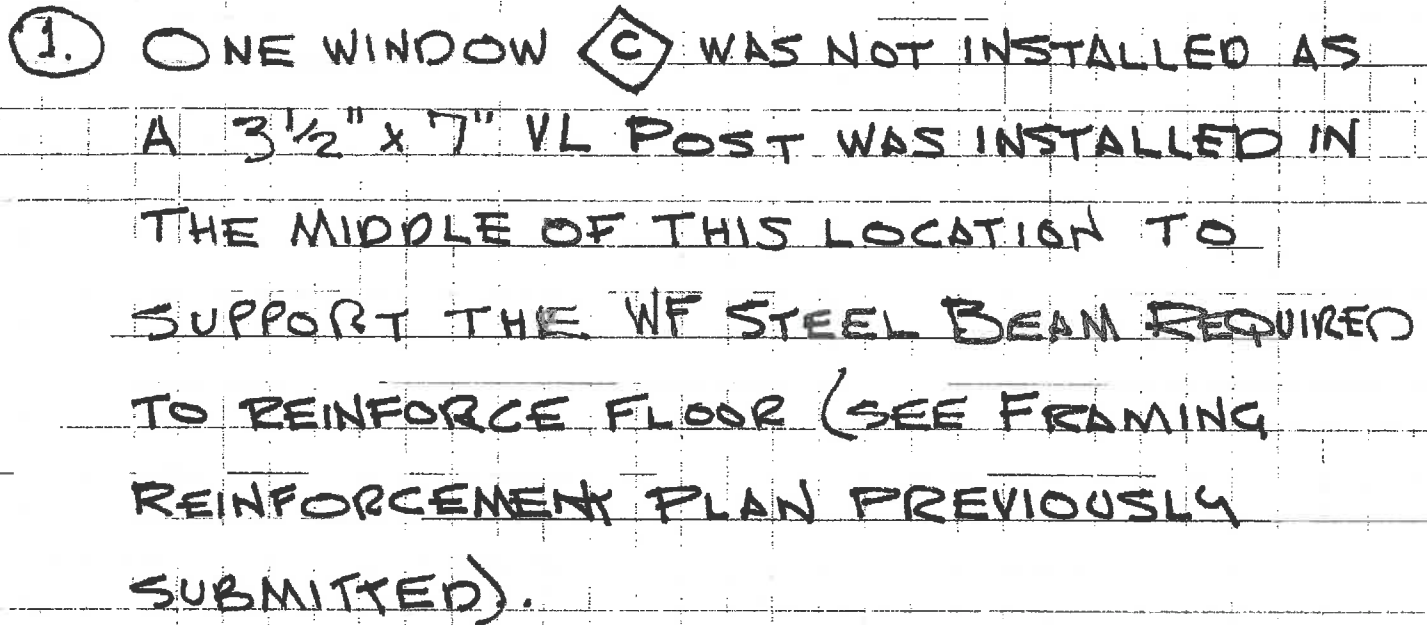 1. ONE WINDOW C WAS NOT INSTALLED AS
A 3 1/2" x 7" VL POST WAS INSTALLED IN
THE MIDDLE OF THIS LOCATION TO
SUPPORT THE WF STEEL BEAM REQUIRED
TO REINFORCE FLOOR (SEE FRAMING
REINFORCEMENT PLAN PREVIOUSLY
SUBMITTED).